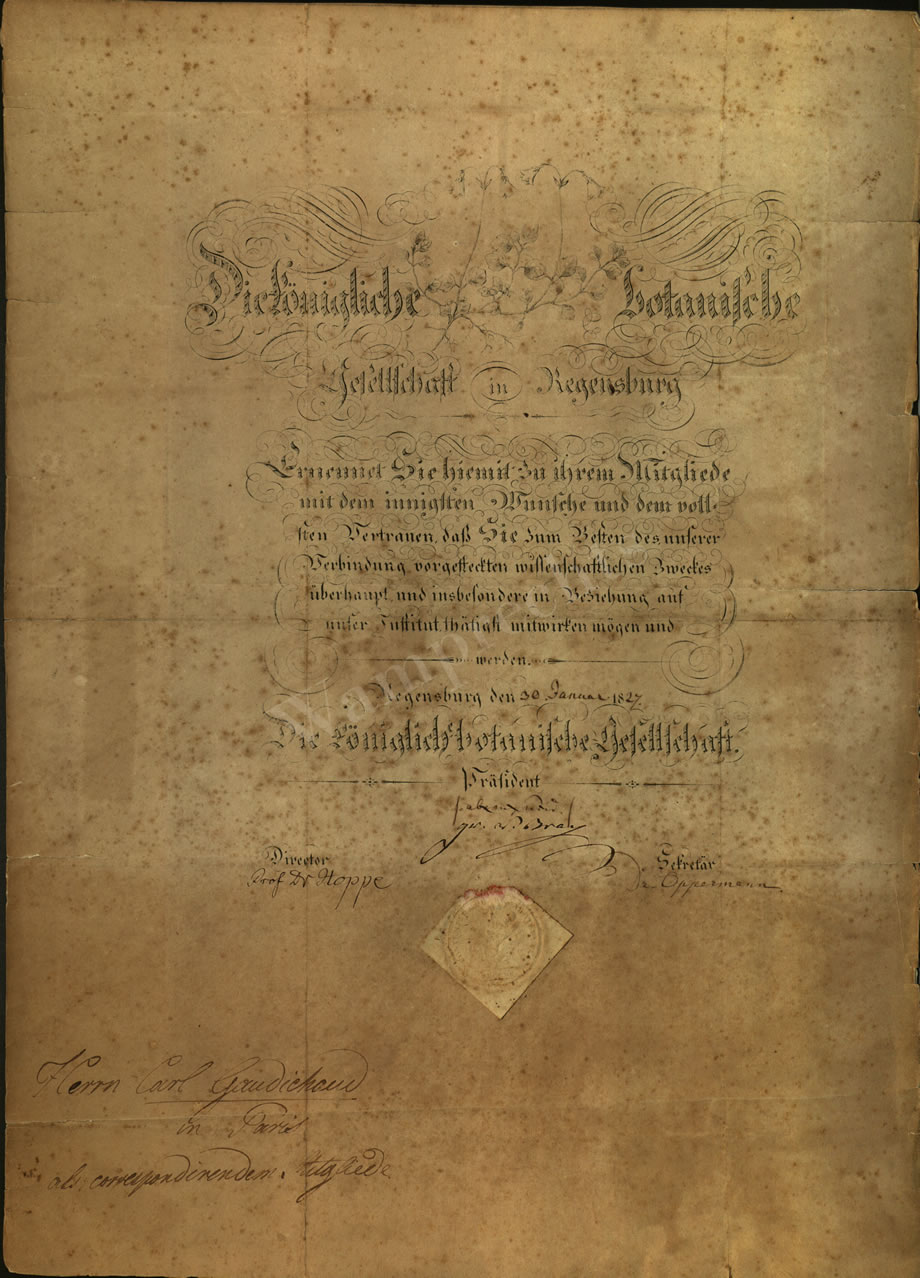 Die Königliche botanische
Gesellschaft in Regensburg
Ernennet Sie hiemit zu ihrem Mitgliede
mit dem innigsten Wunsche und dem voll-
sten Vertrauen, daß Sie zum Besten des unserer
Verbindung vorgesteckten wissenschaftlichen Zweckes
überhaupt, und insbesondere in Beziehung auf
unser Institut thätigst mitwirken mögen und
werden.
Regensburg den 30 Januar 1827
Die königlich botanische Gesellschaft.
Präsident
Director
Sekretär
Prof. Dr Hoppe
Dr. Oppermann
Herrn Carl Gaudichaud
in Paris
als correspondirendem Mitgliede